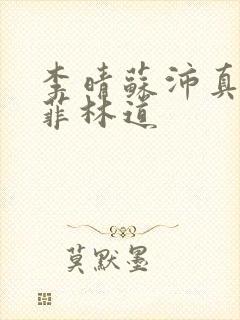 李晴蘇沛真
菲林道
莫默墨